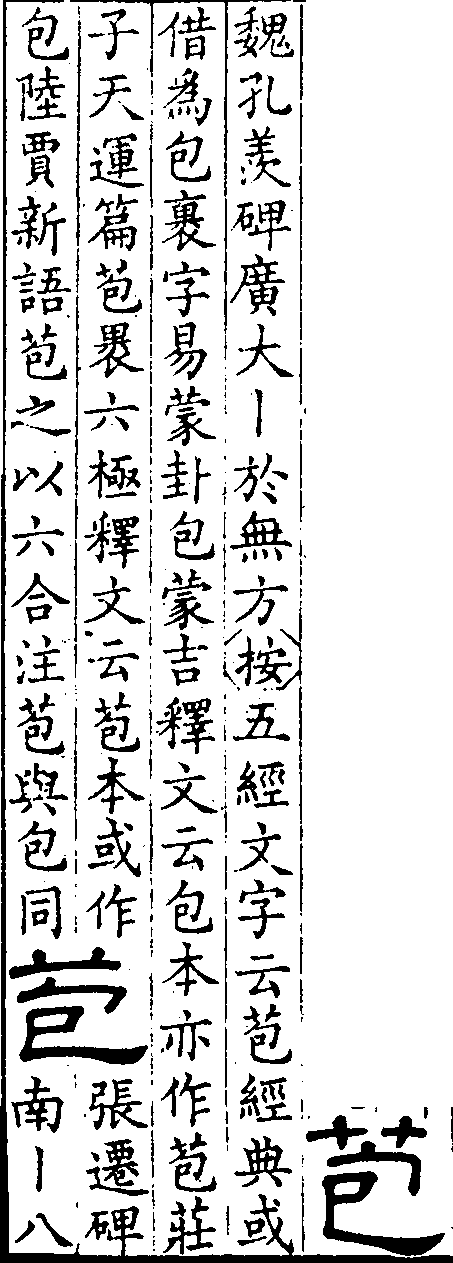 苞
魏孔羨碑廣大丨於無方按五經文字云苞經典或
借為包裹字易蒙卦包蒙吉釋文云包本亦作苞莊
子天運篇苞褁六極釋文云苞本或作
包陸賈新語苞之以六合注苞與包同
苞
張遷碑
南丨八